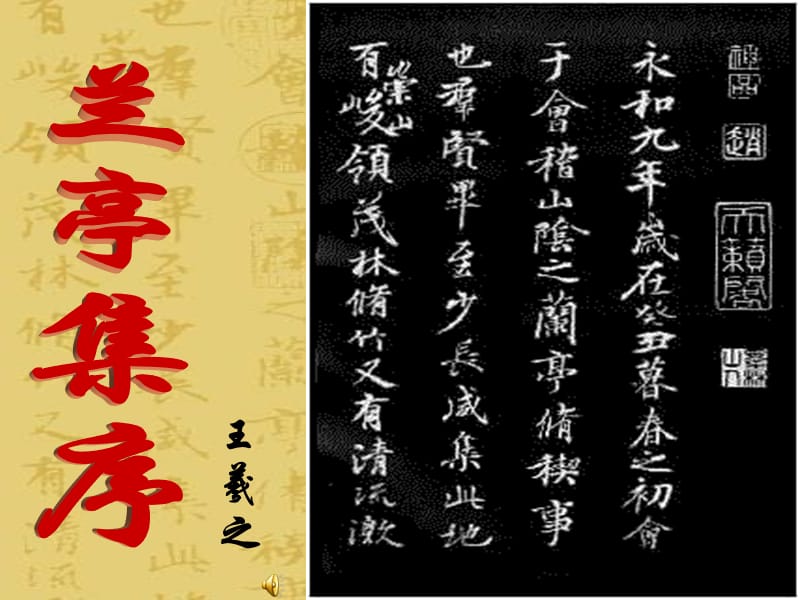 兰亭集序
王羲之
永和九年歲在癸丑暮春之初會
于會稽山陰之蘭亭脩稧事
也羣賢畢至少長咸集此地
有崇山峻領茂林脩竹又有清流激
神品
趙
天籟閣